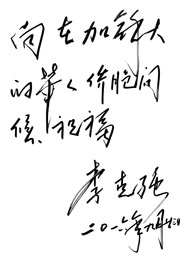 向在加拿大
的华人侨胞问
候、祝福
李克强
二〇一六年九月廿二日